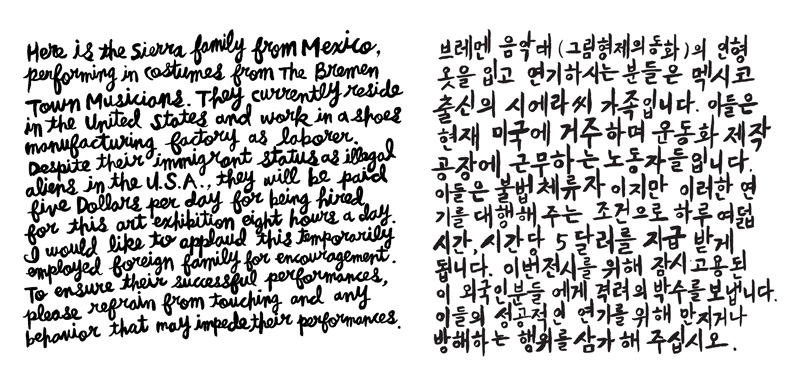 Here is the Sierra family from Mexico,
performing in costumes from The Bremen
Town Musicians. They currently reside
in the United States and work in a shoes
manufacturing factory as laborer.
Despite their immigrant status as illegal
aliens in the U.S.A., they will be paid
five Dollars per day for being hired
for this art exhibition eight hours a day.
I would like to applaud this temporarily
employed foreign family for encouragement.
To ensure their successful performances,
please refrain from touching and any
behavior that may impede their performances.
브레멘 음악대 (그림형제의 동화)의 인형
옷을 입고 연기하시는 분들은 멕시코
출신의 시에라씨 가족입니다. 이들은
현재 미국에 거주하며 운동화 제작
공장에 근무하는 노동자들입니다.
이들은 불법체류자이지만 이러한 연
기를 대행해 주는 조건으로 하루 여덟
시간, 시간당 5달러를 지급 받게
됩니다. 이번전시를 위해 잠시 고용된
이 외국인분들에게 격려의 박수를 보냅니다.
이들의 성공적인 연기를 위해 만지거나
방해하는 행위를 삼가해 주십시오.